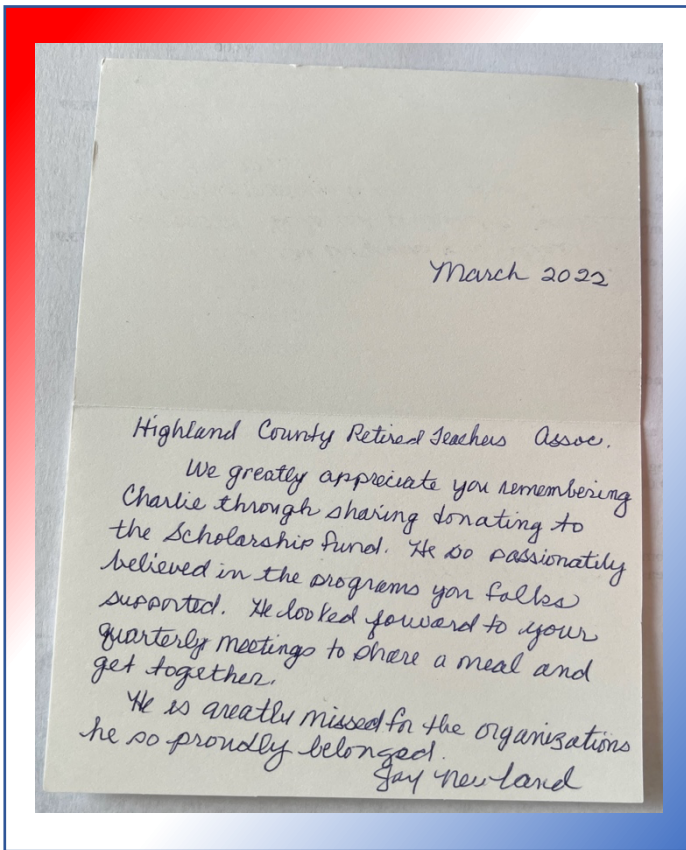 March 2022
Highland County Retired Teachers Assoc.
We greatly appreciate you remembering
Charlie through sharing donating to
the Scholarship fund. He so passionately
believed in the programs you folks
supported. He looked forward to your
quarterly meetings to share a meal and
get together.
He is greatly missed for the organizations
he so proudly belonged.
Newland